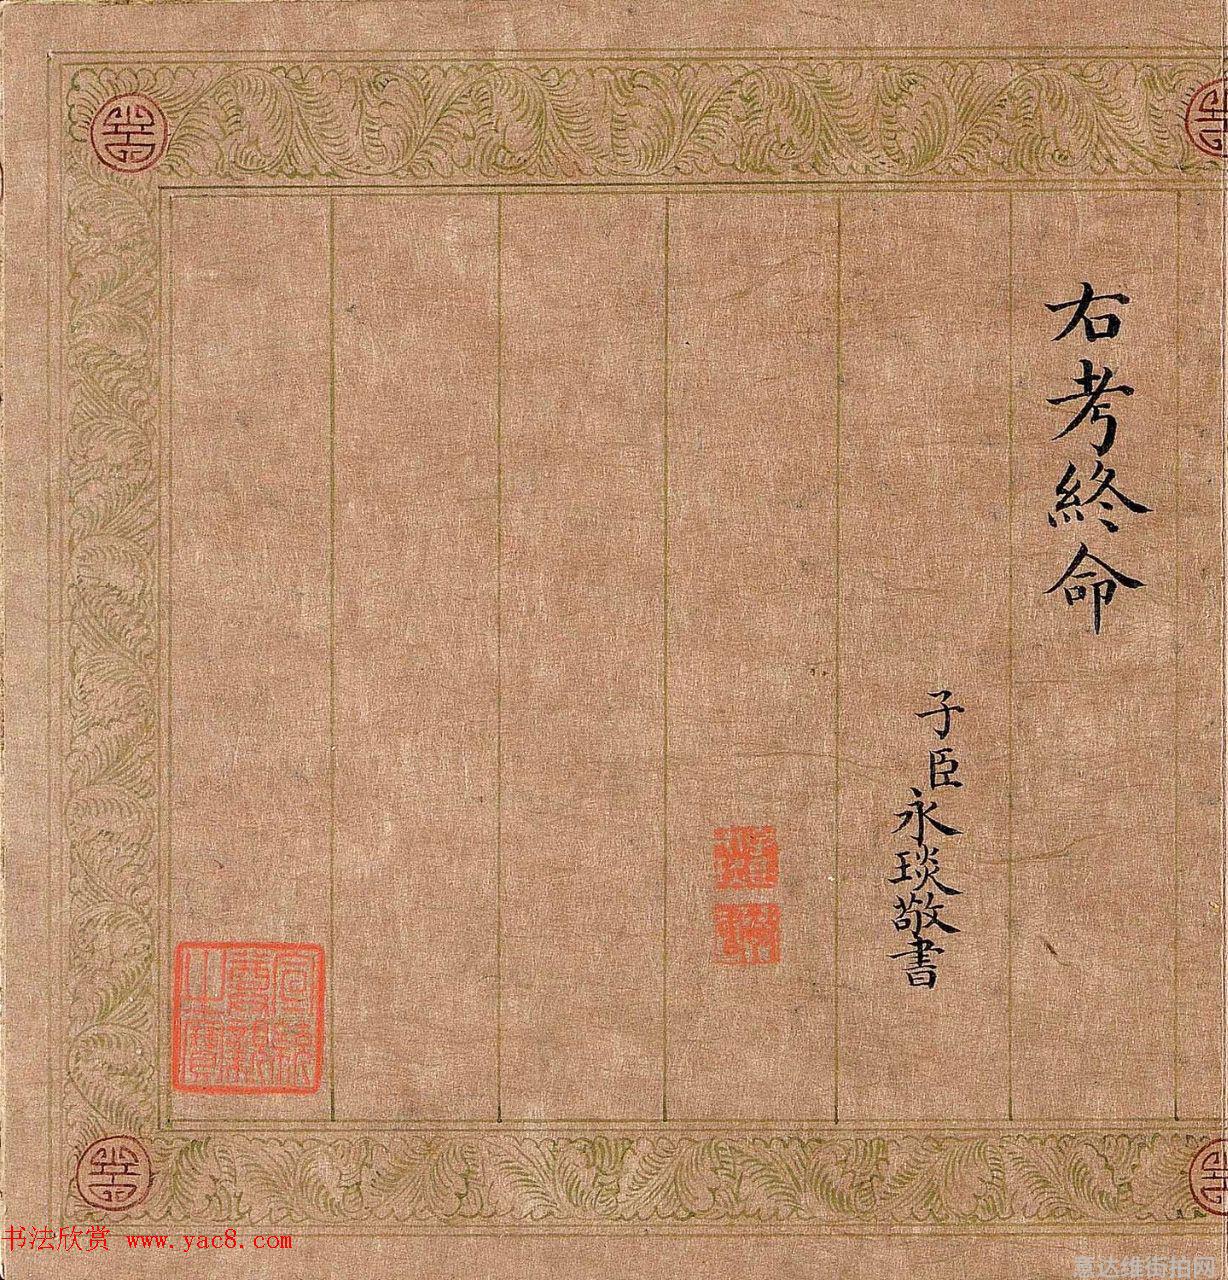 右考終命
子臣永琰敬書
宣統御覽之寶
书法欣赏 www.yac8.com
意达维街拍网